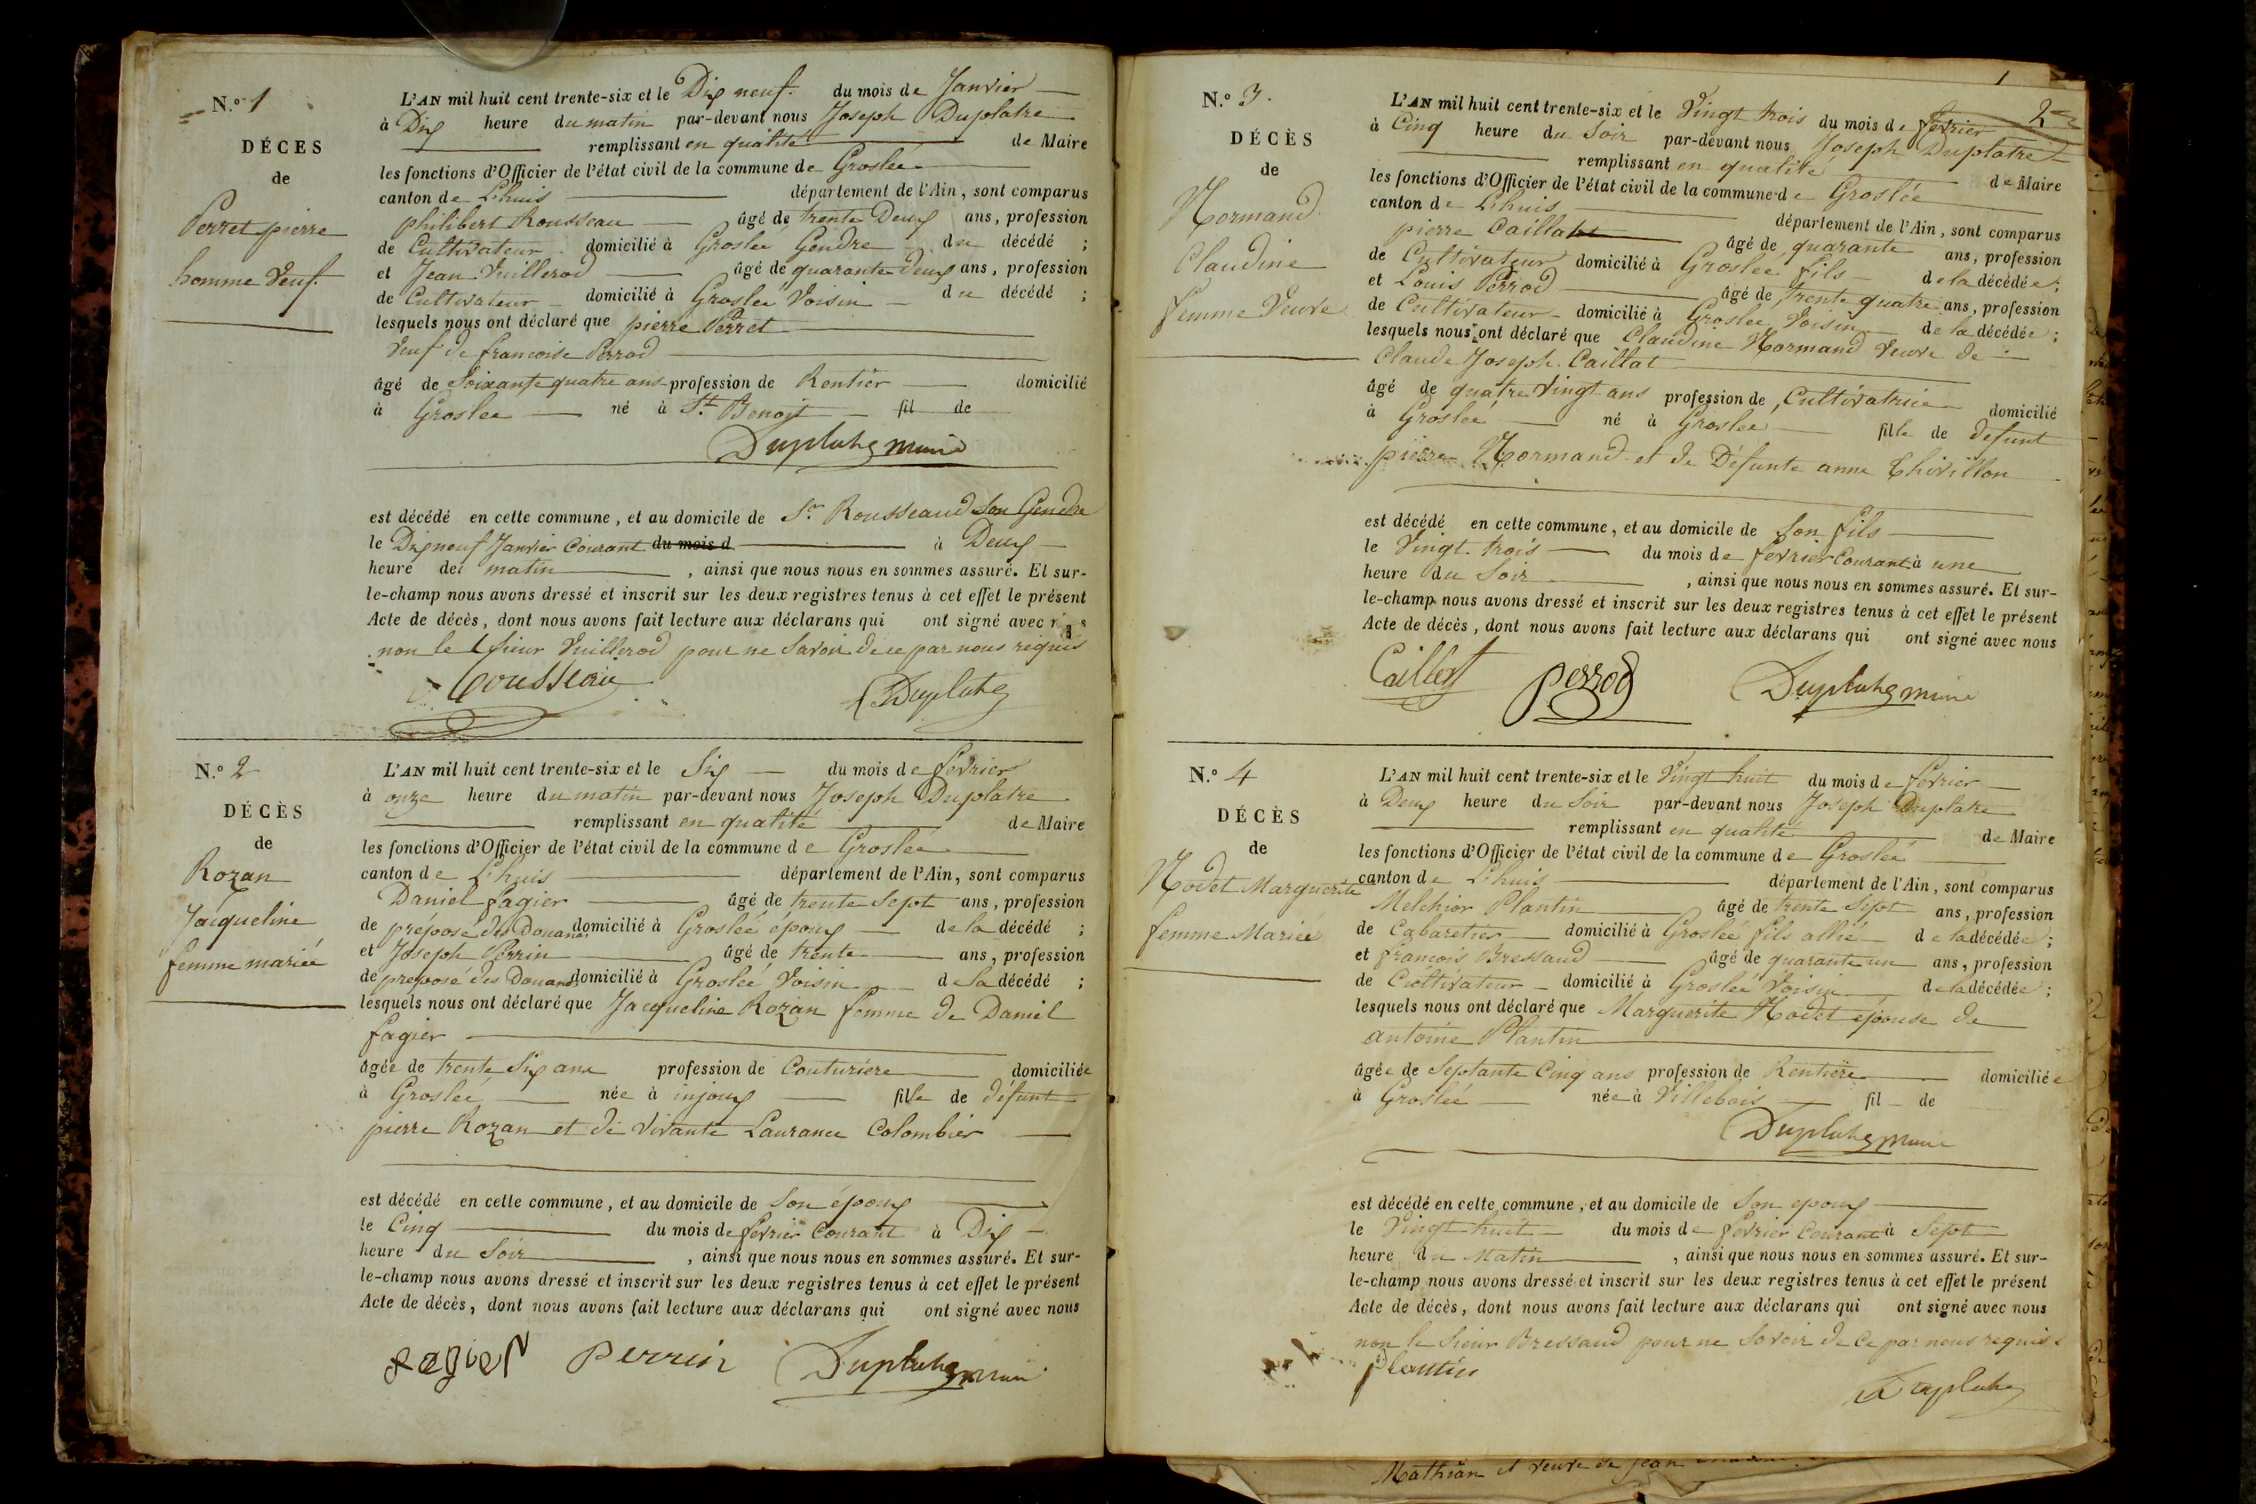 N.° 1
DÉCES
de
Perret pierre
homme Veuf.
L'AN mil huit cent trente-six et le Dix neuf. du mois de Janvier
à Dix heure du matin par-devant nous Joseph Duplatre
remplissant en qualité de Maire
les fonctions d'Officier de l'état civil de la commune de Groslée
canton de L'huis département de l'Ain, sont comparus
philibert Rousseau âgé de trente Deux ans, profession
de Cultivateur domicilié à Groslée Gendre du décédé ;
et Jean Vuillerod âgé de quarante deux ans, profession
de Cultivateur domicilié à Groslée Voisin du décédé ;
lesquels nous ont déclaré que pierre Perret
Veuf de francoise Perrod
âgé de Soixante quatre ans profession de Rentier domicilié
à Groslée né à St. Benoit fil de
Duplatre maire
est décédé en cette commune, et au domicile de Sr. Rousseaud Son Gendre
le Dix neuf Janvier Courant du mois d à Deux
heure de matin , ainsi que nous nous en sommes assuré. Et sur-
le-champ nous avons dressé et inscrit sur les deux registres tenus à cet effet le présent
Acte de décès, dont nous avons fait lecture aux déclarans qui ont signé avec
non le Sieur Vuillerod pour ne Savoir de ce par nous requis
Rousseau
Duplatre
N.° 2
DÉCÈS
de
Rozan
Jacqueline
femme mariée
L'AN mil huit cent trente-six et le Six du mois de fevrier
à onze heure du matin par-devant nous Joseph Duplatre
remplissant en qualité de Maire
les fonctions d'Officier de l'état civil de la commune de Groslée
canton de L'huis département de l'Ain, sont comparus
Daniel fagier âgé de trente Sept ans, profession
de préposé des Douanes domicilié à Groslée époux de la décédé ;
et Joseph Perrin âgé de trente ans, profession
de preposé des Douanes domicilié à Groslée Voisin de la décédé ;
lesquels nous ont déclaré que Jacqueline Rozan femme de Daniel
fagier
âgée de trente Six ans profession de Couturière domiciliée
à Groslée née à injoux fille de défunt
pierre Rozan et de Vivante Laurance Colombier
est décédé en cette commune, et au domicile de Son époux
le Cinq du mois de fevrier Courant à Dix
heure du Soir , ainsi que nous nous en sommes assuré. Et sur-
le-champ nous avons dressé et inscrit sur les deux registres tenus à cet effet le présent
Acte de décès, dont nous avons fait lecture aux déclarans qui ont signé avec nous
fagier Perrin Duplatre maire
1
2
N.° 3.
DÉCÈS
de
Normand
Claudine
femme Veuve
L'AN mil huit cent trente-six et le Vingt trois du mois de fevrier
à Cinq heure du Soir par-devant nous Joseph Duplatre
remplissant en qualité de Maire
les fonctions d'Officier de l'état civil de la commune de Groslée
canton de L'huis département de l'Ain, sont comparus
pierre Caillat âgé de quarante ans, profession
de Cultivateur domicilié à Groslee fils de la décédée ;
et Louis Perrod âgé de trente quatre ans, profession
de Cultivateur domicilié à Groslee Voisin de la décédée ;
lesquels nous ont déclaré que Claudine Normand Veuve de
Claude Joseph Caillat
âgé de quatre Vingt ans profession de Cultivatrice domicilié
à Groslée né à Groslée fille de defunt
pierre Normand et de Défunte anne Thivillon
est décédé en cette commune, et au domicile de Son fils
le Vingt trois du mois de fevrier Courant à une
heure du Soir , ainsi que nous nous en sommes assuré. Et sur-
le-champ nous avons dressé et inscrit sur les deux registres tenus à cet effet le présent
Acte de décès, dont nous avons fait lecture aux déclarans qui ont signé avec nous
Caillat Perrod Duplatre maire
N.° 4
DÉCÈS
de
Nodet Marguerite
femme Mariée
L'AN mil huit cent trente-six et le Vingt huit du mois de fevrier
à Deux heure du Soir par-devant nous Joseph Duplatre
remplissant en qualité de Maire
les fonctions d'Officier de l'état civil de la commune de Groslée
canton de L'huis département de l'Ain, sont comparus
Melchior Plantin âgé de trente Sept ans, profession
de Cabaretier domicilié à Groslée fils allié de la décédée ;
et francois Bressaud âgé de quarante un ans, profession
de Cultivateur domicilié à Groslée Voisin de la décédée ;
lesquels nous ont déclaré que Marguerite Nodet épouse de
antoine Plantin
âgée de Septante Cinq ans profession de Rentière domiciliée
à Groslée née à Villebois fil de
Duplatre maire
est décédé en cette commune, et au domicile de Son epoux
le Vingt huit du mois de fevrier Courant à Sept
heure du Matin , ainsi que nous nous en sommes assuré. Et sur-
le-champ nous avons dressé et inscrit sur les deux registres tenus à cet effet le présent
Acte de décès, dont nous avons fait lecture aux déclarans qui ont signé avec nous
non le Sieur Bressaud pour ne Savoir de ce par nous requis
Plantin
Duplatre
Mathian et veuve de jean